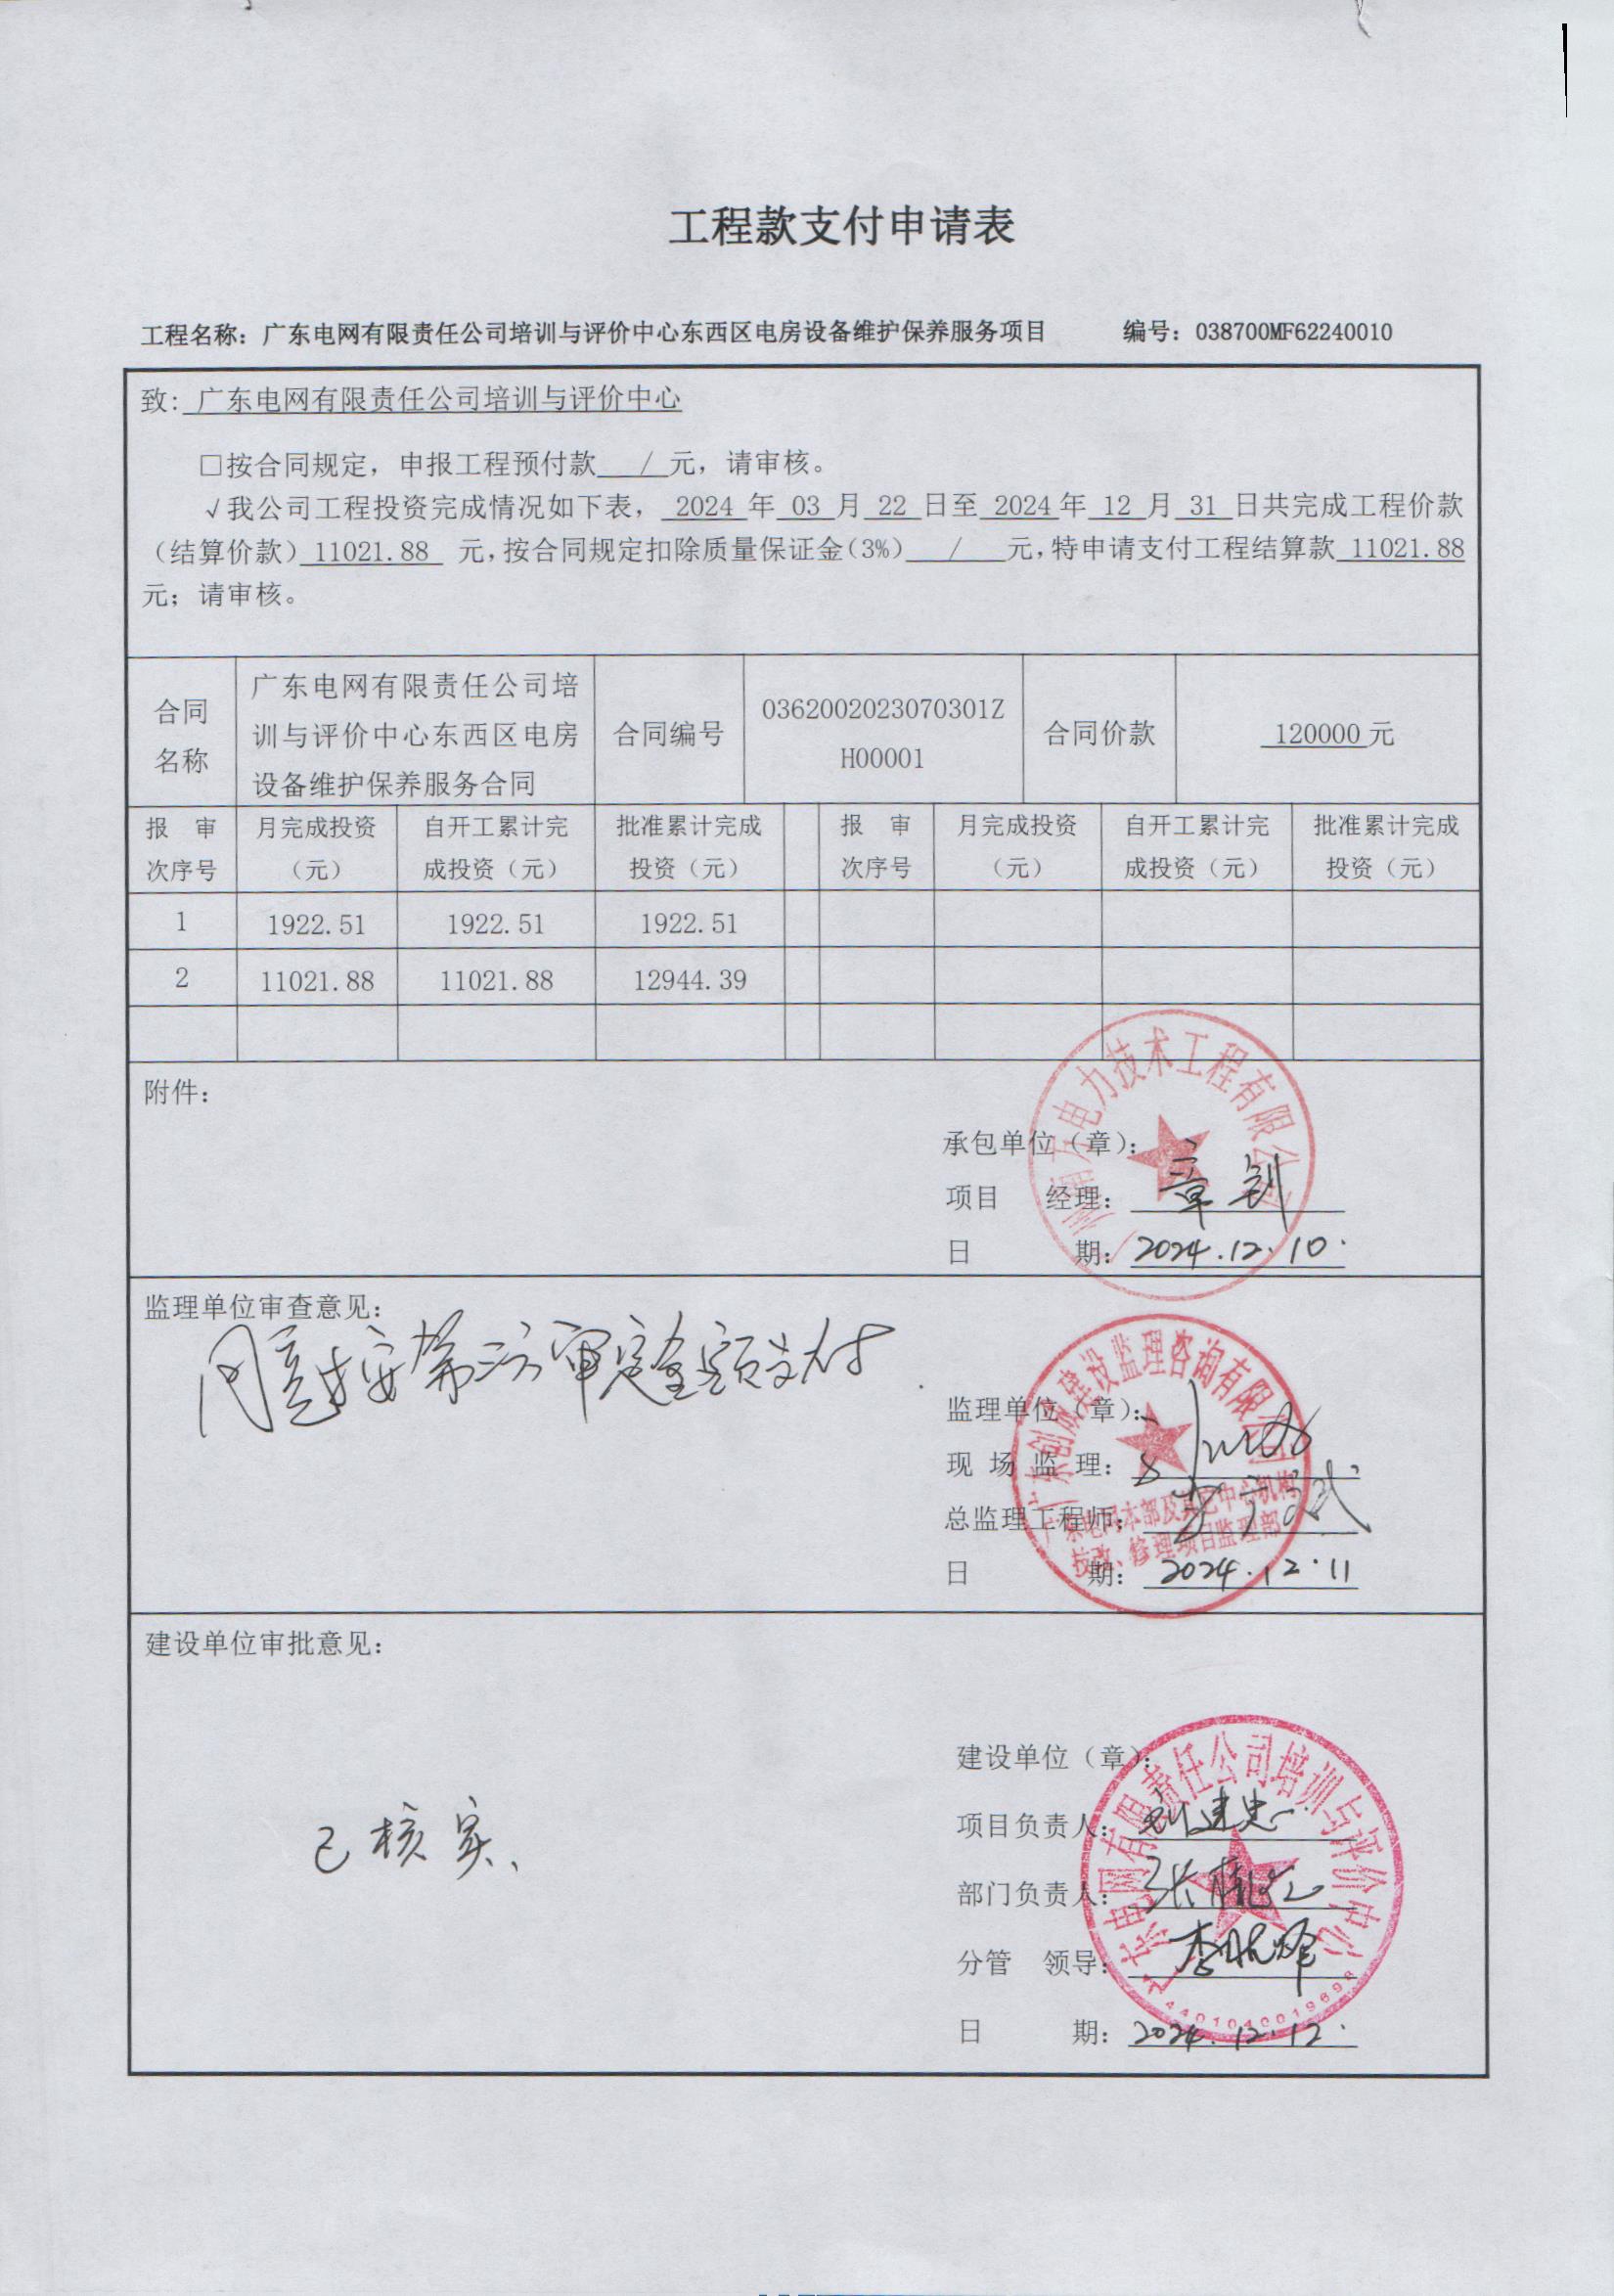 工程款支付申请表
工程名称：广东电网有限责任公司培训与评价中心东西区电房设备维护保养服务项目 编号：038700MF62240010
致：广东电网有限责任公司培训与评价中心
□按合同规定，申报工程预付款 / 元，请审核。
√我公司工程投资完成情况如下表，2024 年 03 月 22 日至 2024 年 12 月 31 日共完成工程价款
（结算价款）11021.88 元，按合同规定扣除质量保证金(3%) / 元，特申请支付工程结算款 11021.88
元；请审核。
合同名称 广东电网有限责任公司培训与评价中心东西区电房设备维护保养服务合同 合同编号 0362002023070301ZH00001 合同价款 120000 元
报审次序号 月完成投资（元） 自开工累计完成投资（元） 批准累计完成投资（元） 报审次序号 月完成投资（元） 自开工累计完成投资（元） 批准累计完成投资（元）
1 1922.51 1922.51 1922.51
2 11021.88 11021.88 12944.39
附件：
承包单位（章）：
项目 经理：章钊
日 期：2024.12.10.
电力技术工程有限公司
监理单位审查意见：
同意按第三方审定金额支付
监理单位（章）：
现场监理：
总监理工程师：
日 期：2024.12.11
广东创成建设监理咨询有限公司
技改、修理项目监理部
建设单位审批意见：
已核实、
建设单位（章）：
项目负责人：刘建忠
部门负责人：
分管 领导：
日 期：2024.12.12.
广东电网有限责任公司培训与评价中心